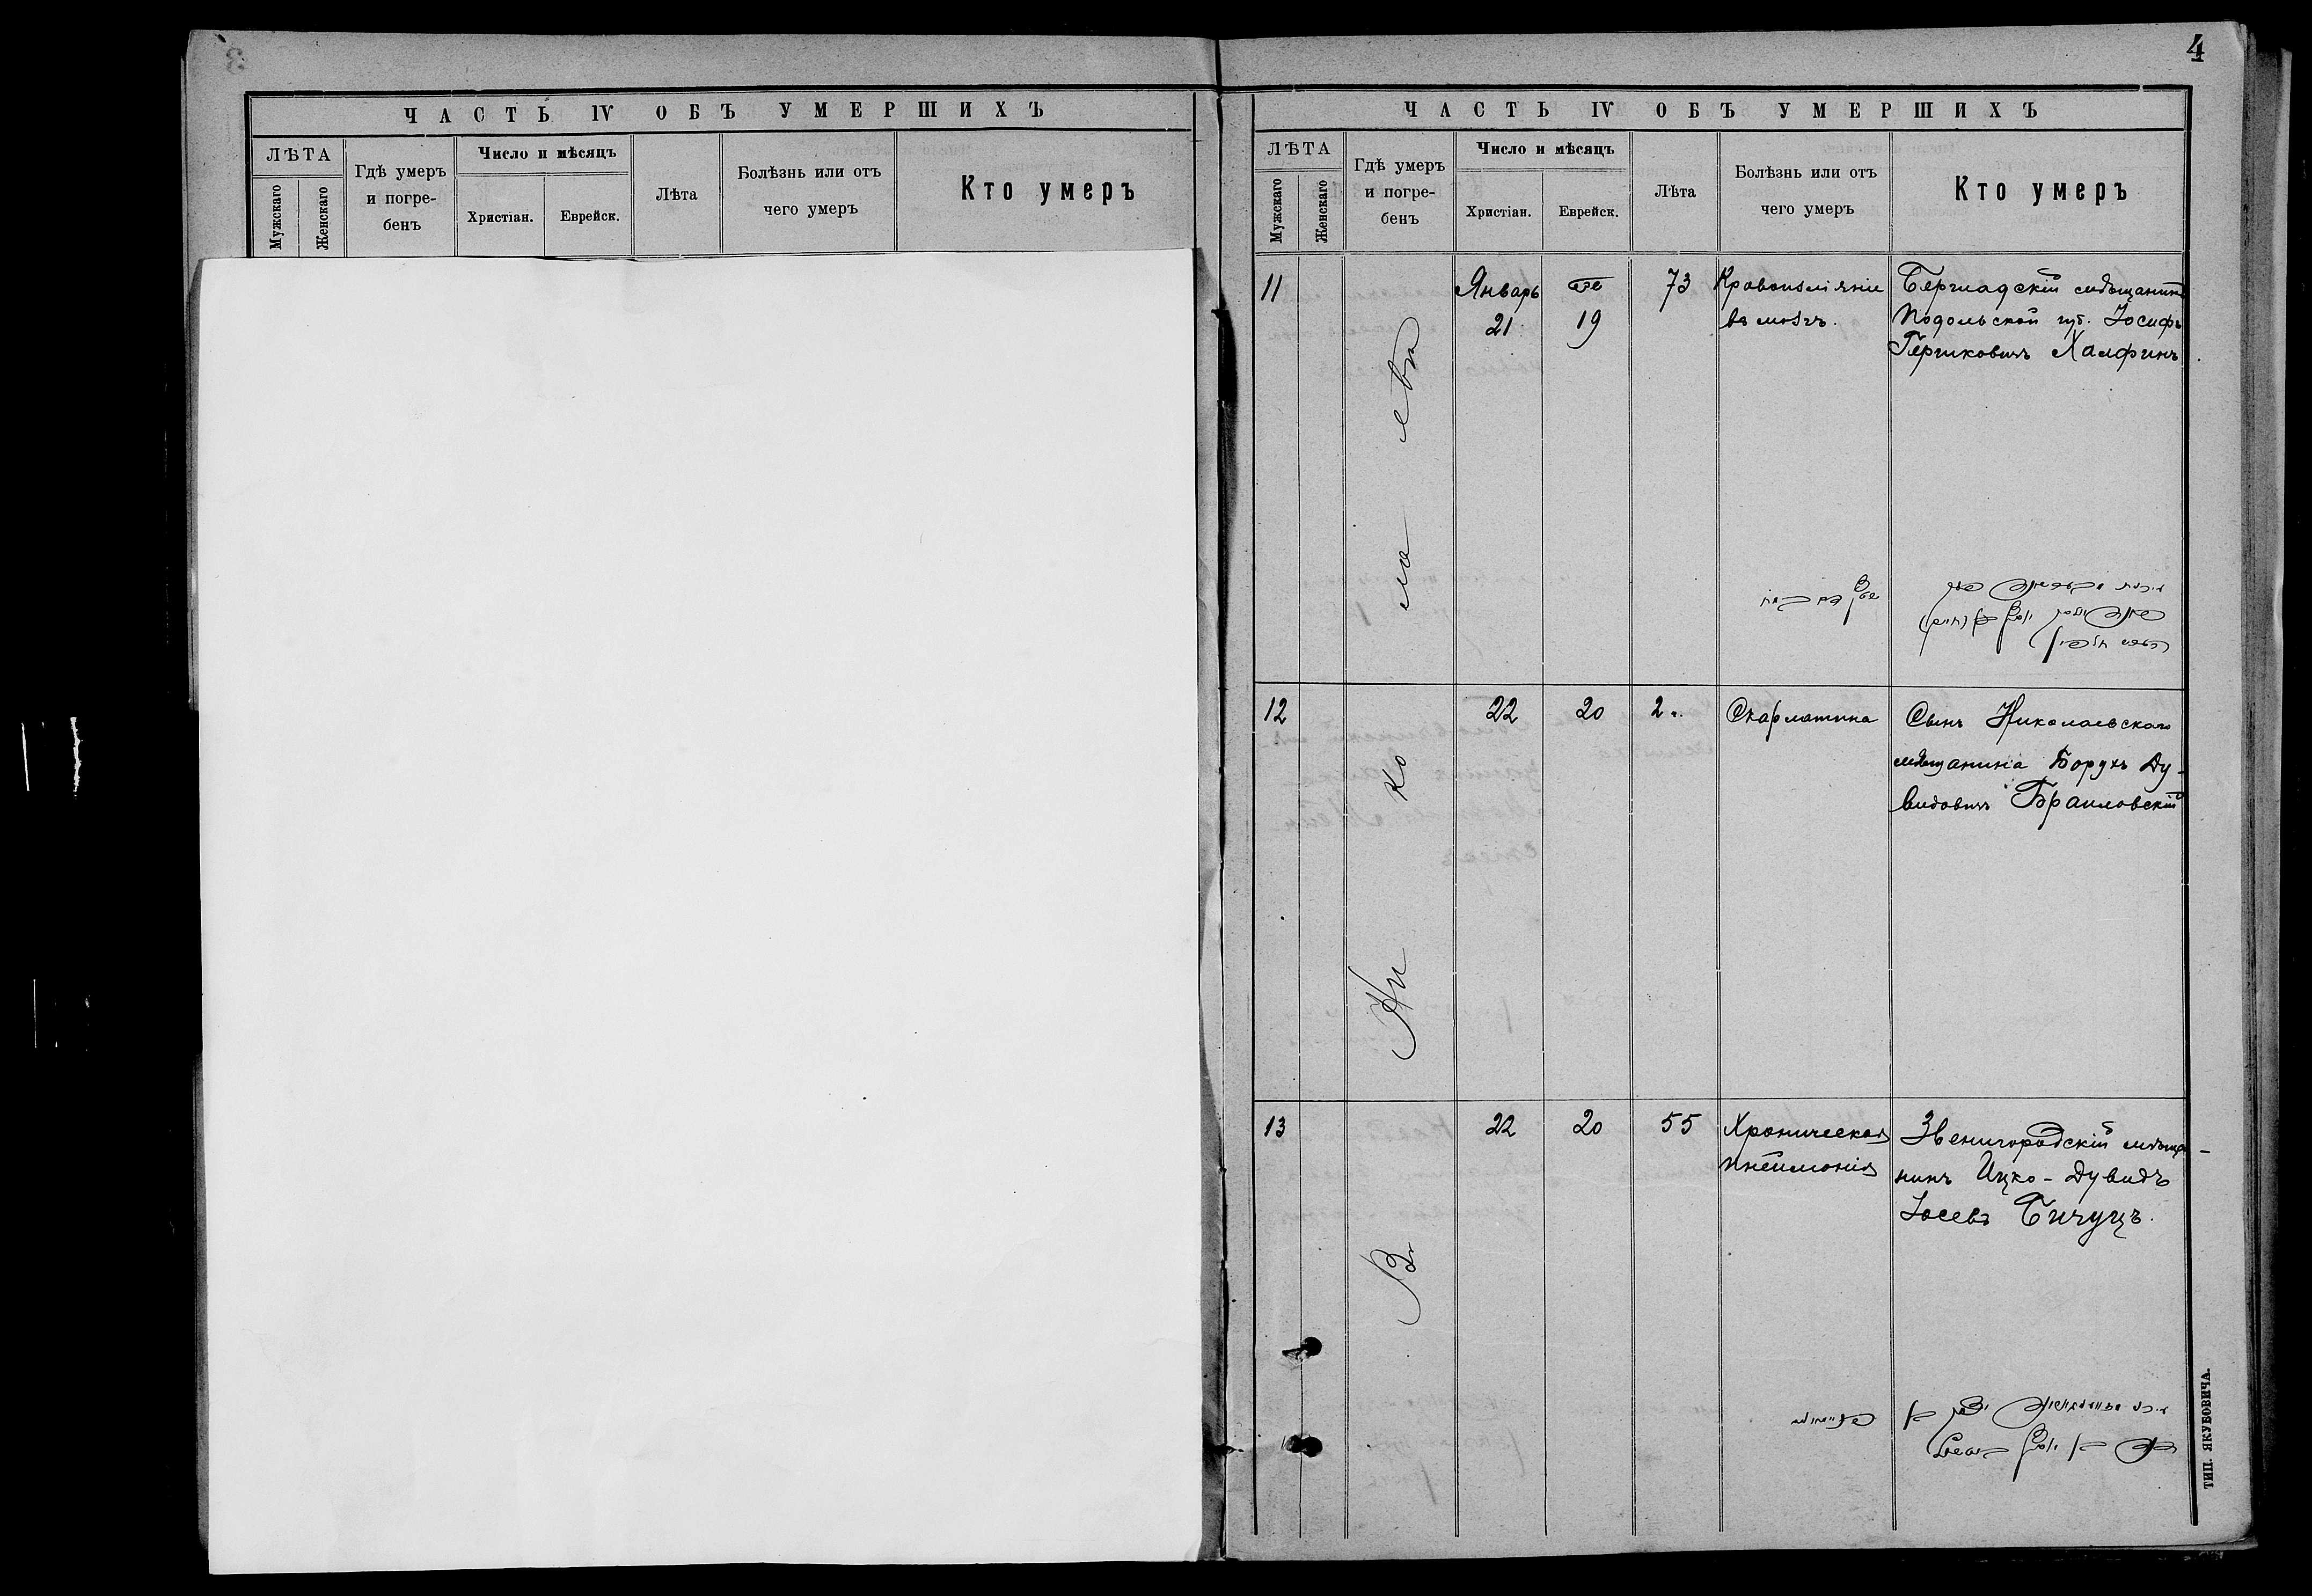 ЧАСТЬ IV ОБЪ УМЕРШИХЪ
ЛѢТА
Мужскаго
Женскаго
Гдѣ умеръ
и погре-
бенъ
Число и мѣсяцъ
Христіан.
Еврейск.
Лѣта
Болѣзнь или отъ
чего умеръ
Кто умеръ
4
ЧАСТЬ IV ОБЪ УМЕРШИХЪ
ЛѢТА
Мужскаго
Женскаго
Гдѣ умеръ
и погре-
бенъ
Число и мѣсяцъ
Христіан.
Еврейск.
Лѣта
Болѣзнь или отъ
чего умеръ
Кто умеръ
Въ Николаевѣ
11
Январь
21
שבט
19
73
Кровоизліяніе
въ мозгъ.
Бершадскій мѣщанинъ
Подольской губ. Іосифъ
Гершковичъ Халфинъ
12
22
20
2 г.
Скарлатина
Сынъ Николаевскаго
мѣщанина Борухъ Ду-
видовичъ Браиловскій
13
22
20
55
Хроническая
пнеймонія
Звенигородскій мѣща-
нинъ Ицко-Дувидъ
Іосевъ Бичуцъ.
ТИП. ЯКУБОВИЧА.